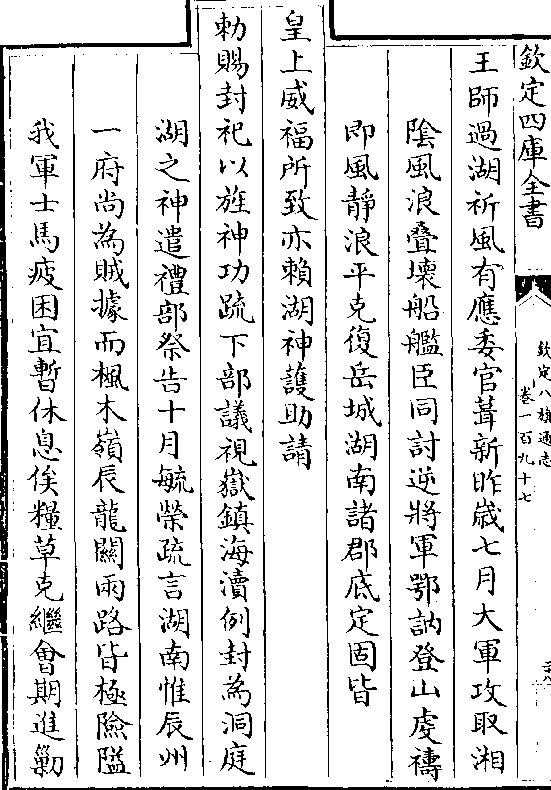 欽定四庫全書
欽定八旗通志
卷一百九十七
王師過湖祈風有應委官葺新昨歲七月大軍攻取湘
陰風浪疊壞船艦臣同討逆將軍鄂訥登山虔禱
即風靜浪平克復岳城湖南諸郡底定固皆
皇上威福所致亦賴湖神護助請
勅賜封祀以旌神功疏下部議視嶽鎮海瀆例封為洞庭
湖之神遣禮部祭告十月毓榮疏言湖南惟辰州
一府尚為賊據而楓木嶺辰龍關兩路皆極險隘
我軍士馬疲困宜暫休息俟糧草克繼會期進勦